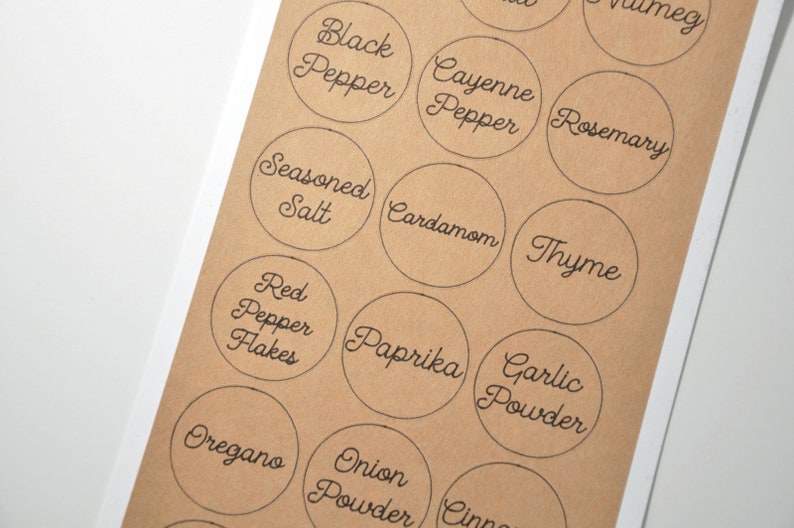 Nutmeg
Black
Pepper
Cayenne
Pepper
Rosemary
Seasoned
Salt
Cardamom
Thyme
Red
Pepper
Flakes
Paprika
Garlic
Powder
Oregano
Onion
Powder